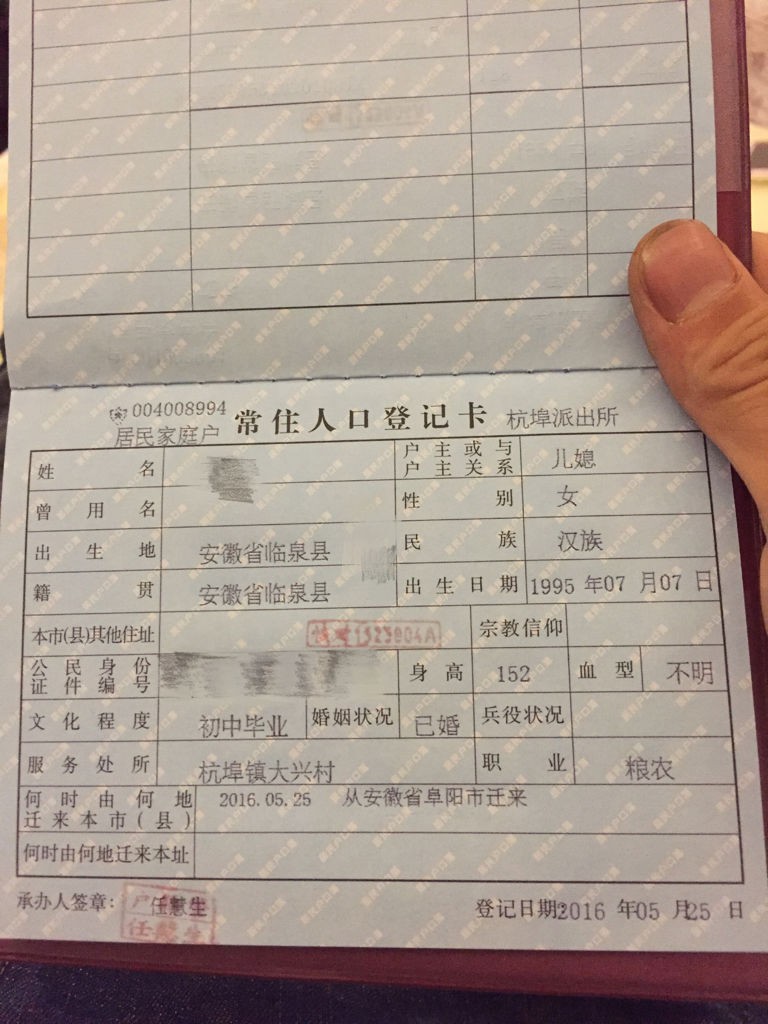 004008994
居民家庭户
常住人口登记卡
杭埠派出所
姓名
户主或与户主关系 儿媳
曾用名
性别 女
出生地 安徽省临泉县
民族 汉族
籍贯 安徽省临泉县
出生日期 1995 年07 月07 日
本市(县)其他住址
宗教信仰
公民身份证件编号
身高 152
血型 不明
文化程度 初中毕业
婚姻状况 已婚
兵役状况
服务处所 杭埠镇大兴村
职业 粮农
何时由何地迁来本市(县) 2016.05.25 从安徽省阜阳市迁来
何时由何地迁来本址
承办人签章: 任慧生
登记日期:2016 年05 月25 日